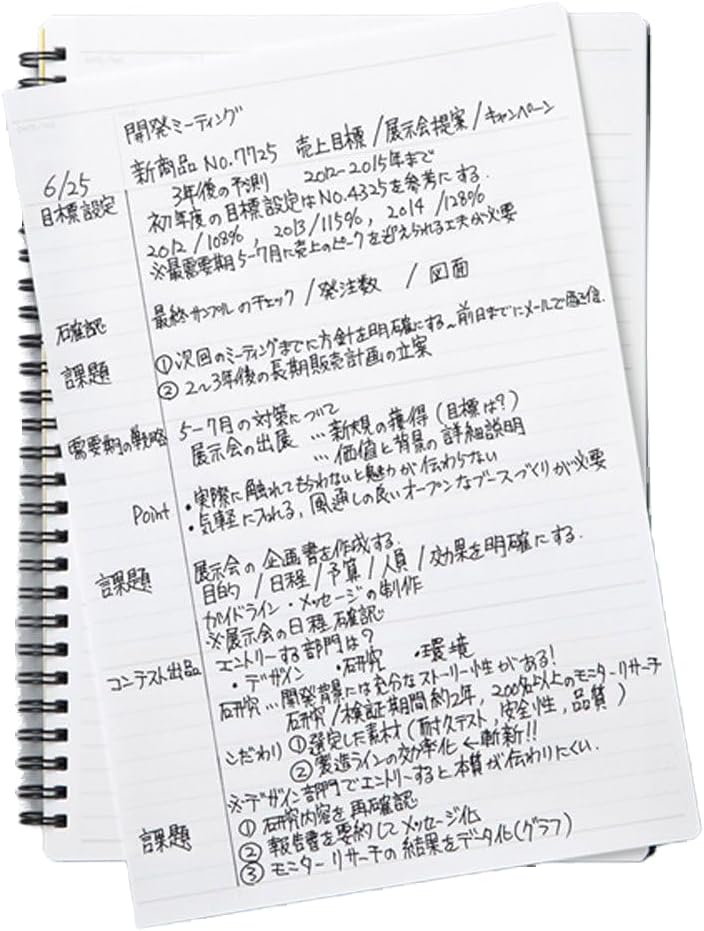 開発ミーティング
新商品 No.7725 売上目標/展示会提案/キャンペーン
6/25
3年後の予測 2012~2015年まで
目標設定 初年度の目標設定はNo.4325を参考にする.
2012/108%, 2013/115%, 2014/128%
※最需要期5-7月に売上のピークを迎えられる工夫が必要
確認 最終サンプルのチェック/発注数 /図面
課題 ①次回のミーティングまでに方針を明確にする~前日までにメールで配信.
②2~3年後の長期販売計画の立案
需要期の戦略 5-7月の対策について
展示会の出展 …新規の獲得(目標は?)
…価値と背景の詳細説明
Point ・実際に触れてもらわないと魅力が伝わらない
・気軽に入れる,風通しの良いオープンなブースづくりが必要
課題 展示会の企画書を作成する.
目的/日程/予算/人員/効果を明確にする.
ガイドライン・メッセージの制作
※展示会の日程確認
コンテスト出品 エントリーする部門は?
・デザイン ・研究 ・環境
研究…開発背景には充分なストーリー性がある!
研究/検証期間約2年,200名以上のモニターリサーチ
こだわり ①選定した素材(耐久テスト,安全性,品質)
②製造ラインの効率化←斬新!!
※デザイン部門でエントリーすると本質が伝わりにくい.
課題 ①研究内容を再確認
②報告書を要約してメッセージ化
③モニターリサーチの結果をデータ化(グラフ)